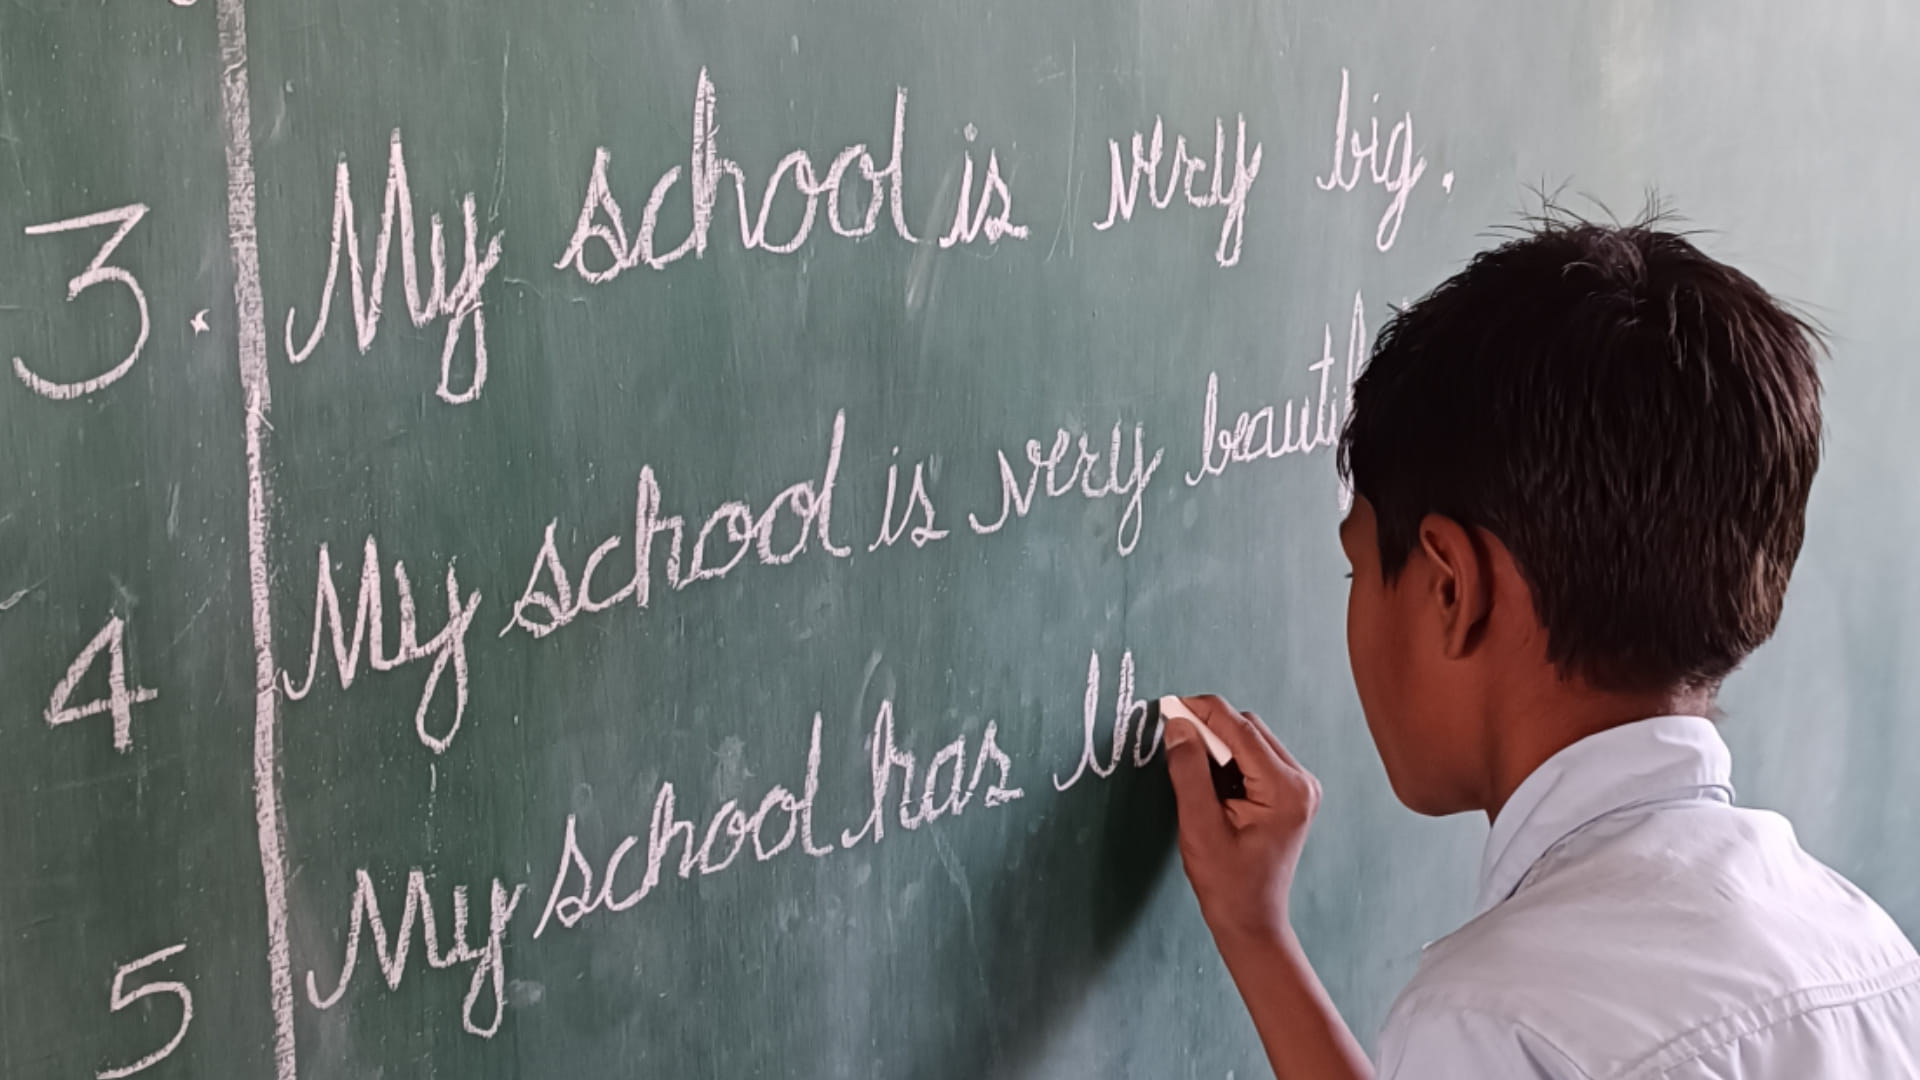 3. My school is very big.
4 My school is very beautif
5 My school has th